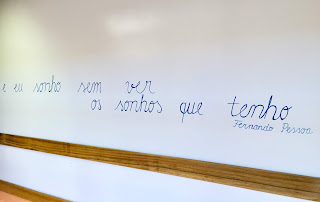 e eu sonho sem ver
os sonhos que tenho
Fernando Pessoa